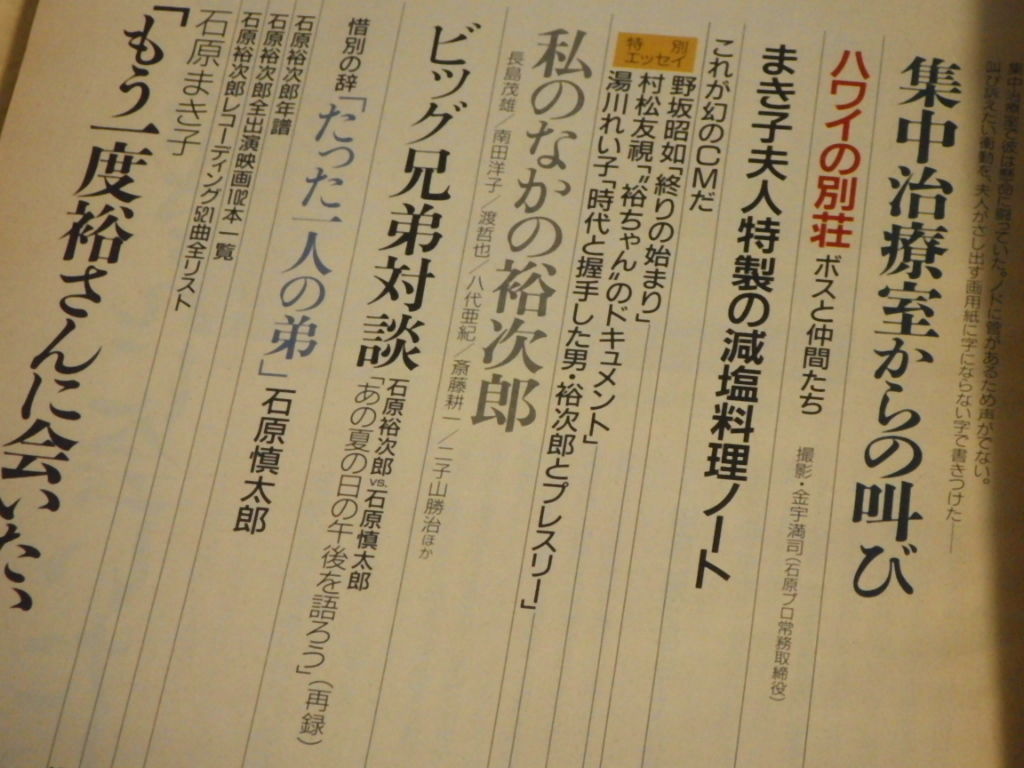 集中治療室で彼は懸命に闘っていた。ノドに管があるため声がでない。
叫び訴えたい衝動を、夫人がさし出す画用紙に字にならない字で書きつけた――
集中治療室からの叫び
ハワイの別荘 ボスと仲間たち
撮影・金宇満司(石原プロ常務取締役)
まき子夫人特製の減塩料理ノート
これが幻のCMだ
特別エッセイ
野坂昭如「終りの始まり」
村松友視「“裕ちゃん”のドキュメント」
湯川れい子「時代と握手した男・裕次郎とプレスリー」
私のなかの裕次郎
長島茂雄/南田洋子/渡哲也/八代亜紀/斎藤耕一/二子山勝治ほか
ビッグ兄弟対談
石原裕次郎vs.石原慎太郎
「あの夏の日の午後を語ろう」(再録)
惜別の辞「たった一人の弟」石原慎太郎
石原裕次郎年譜
石原裕次郎全出演映画102本一覧
石原裕次郎レコーディング521曲全リスト
石原まき子
「もう一度裕さんに会いたい